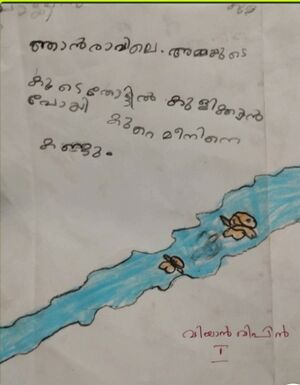 ഞാൻ രാവിലെ. അമ്മയുടെ
കൂടെ തോട്ടിൽ കുളിക്കുൻ
പോയി കുറെ മീനിനെ
കണ്ടു.
വിയാൻ വിപിൻ
I